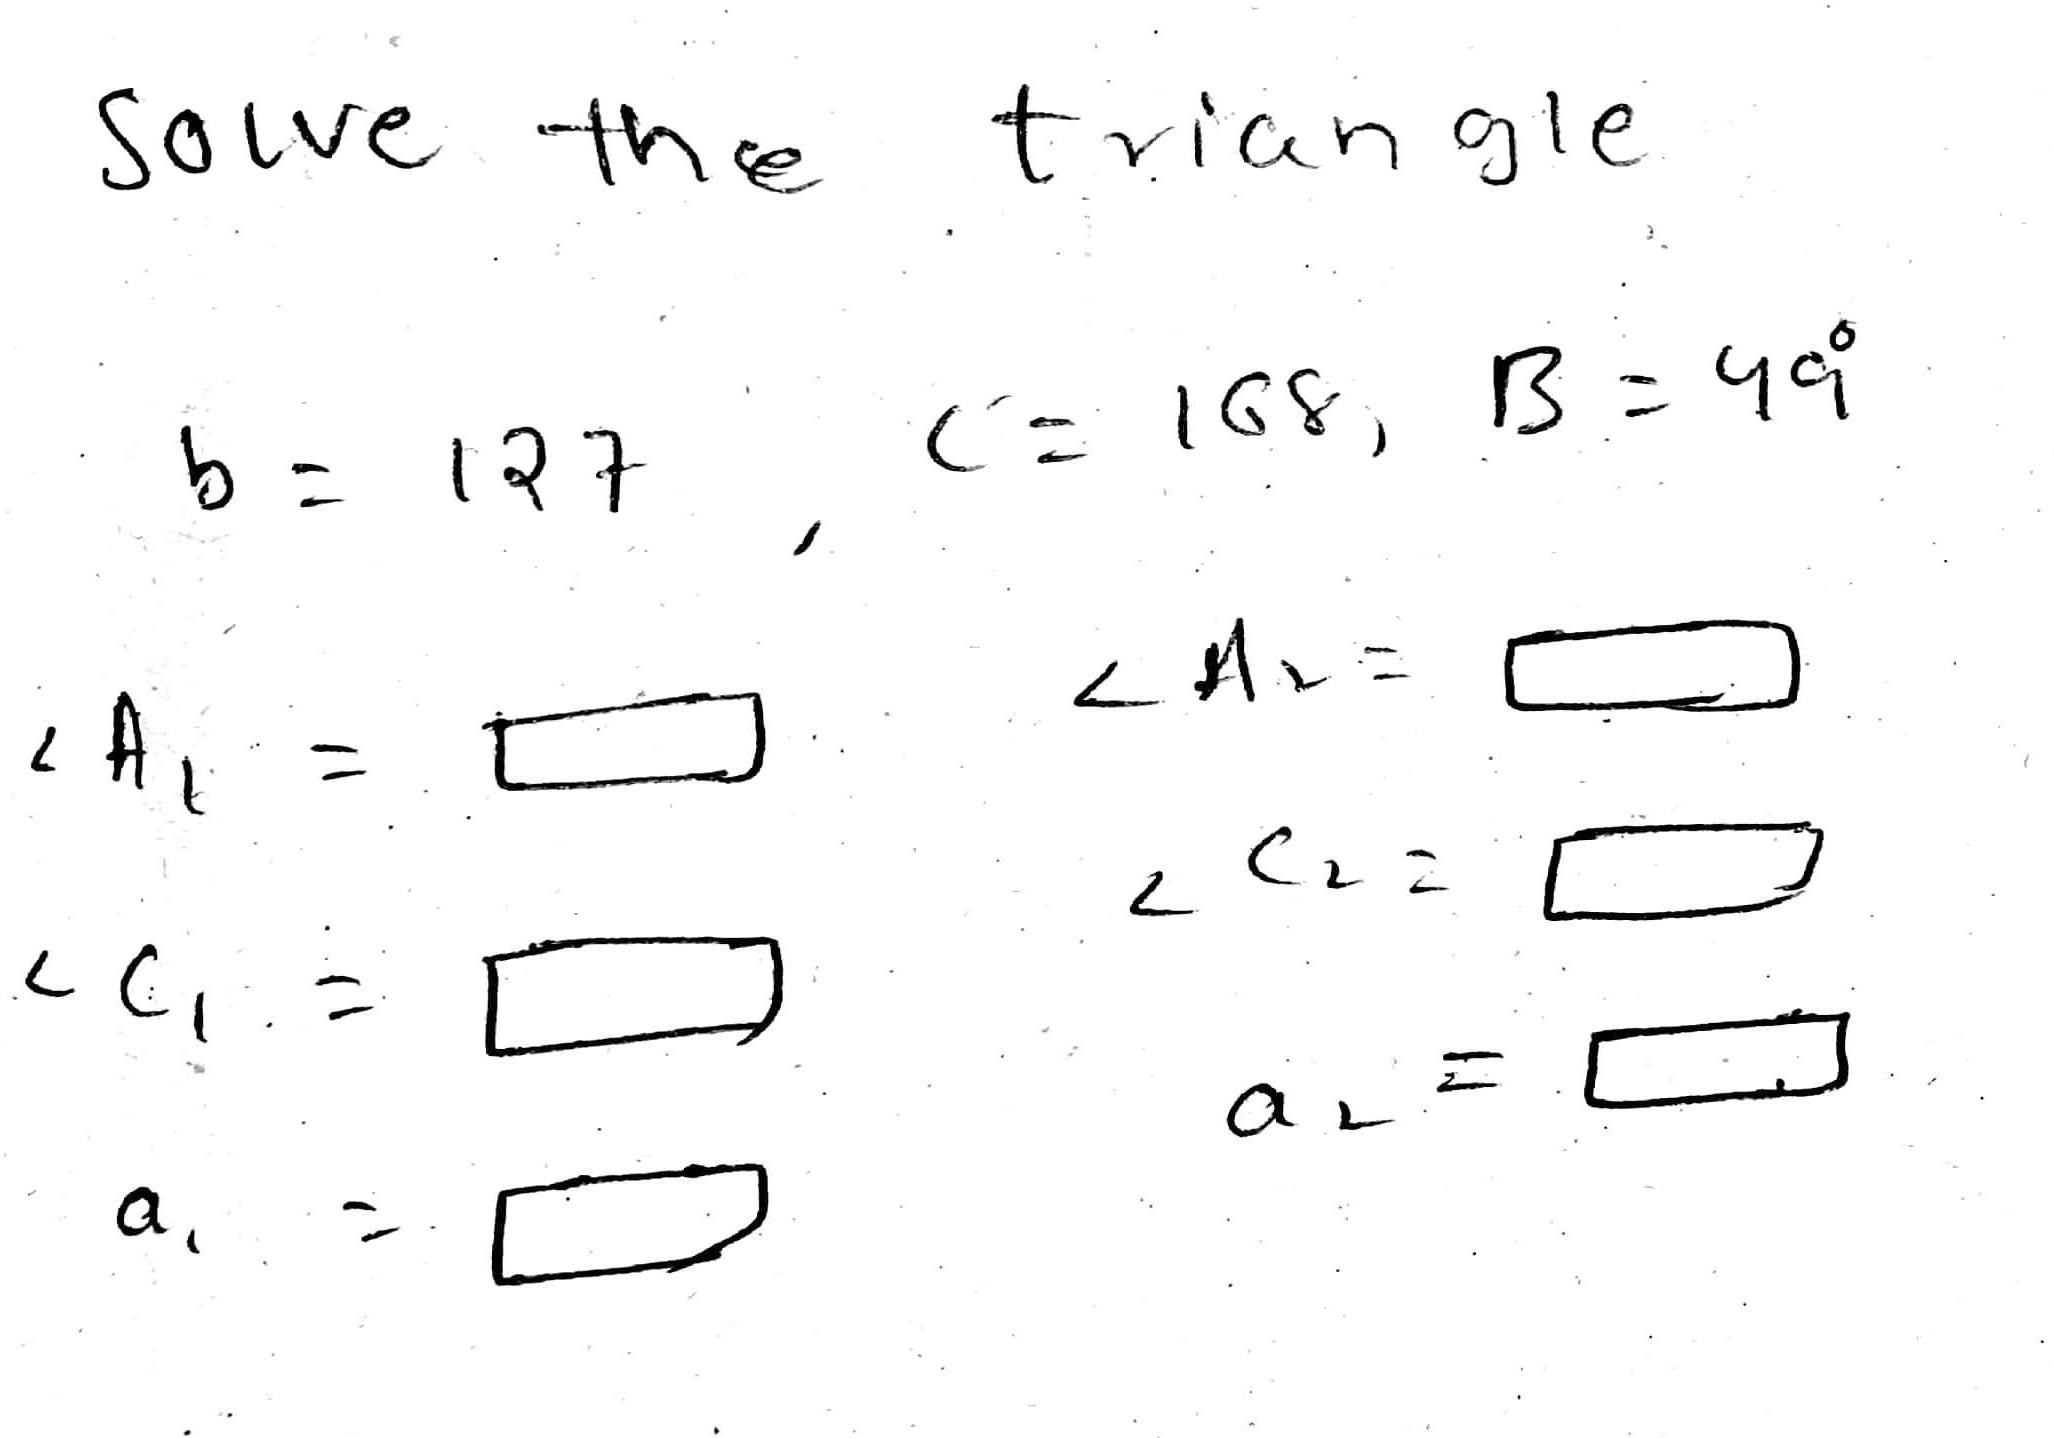 Solve the triangle
b = 127, C = 168, B = 49°
∠A₁ = ∠A₂ =
∠C₁ = ∠C₂ =
a₁ = a₂ =